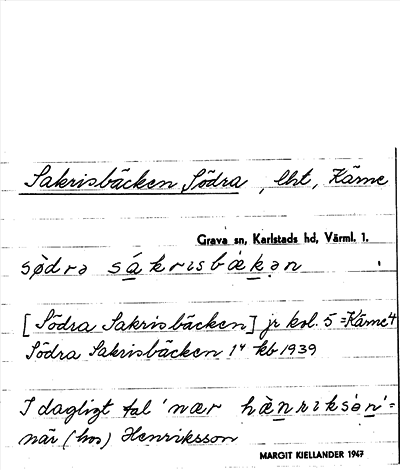 Sakrisbäcken Södra, lht, Kärne
Grava sn, Karlstads hd, Värml. l.
södrə sákrısbækən
[Södra Sakrisbäcken] jr kol. 5 =Kärne 4
Södra Sakrisbäcken 1⁴ kb 1939
I dagligt tal 'nær hænrıksən'=
när (hos) Henriksson
MARGIT KIELLANDER 1947